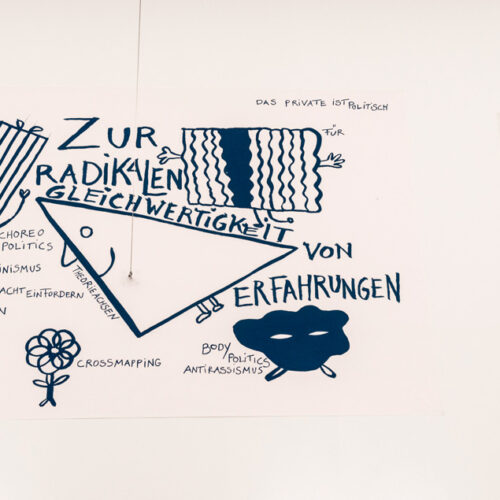 DAS PRIVATE IST POLITISCH
ZUR
FÜR
RADIKALEN
GLEICHWERTIGKEIT
CHOREO
POLITICS
VON
THEORIEACHSEN
EINFORDERN
ERFAHRUNGEN
CROSSMAPPING
BODY
POLITICS
ANTIRASSISMUS